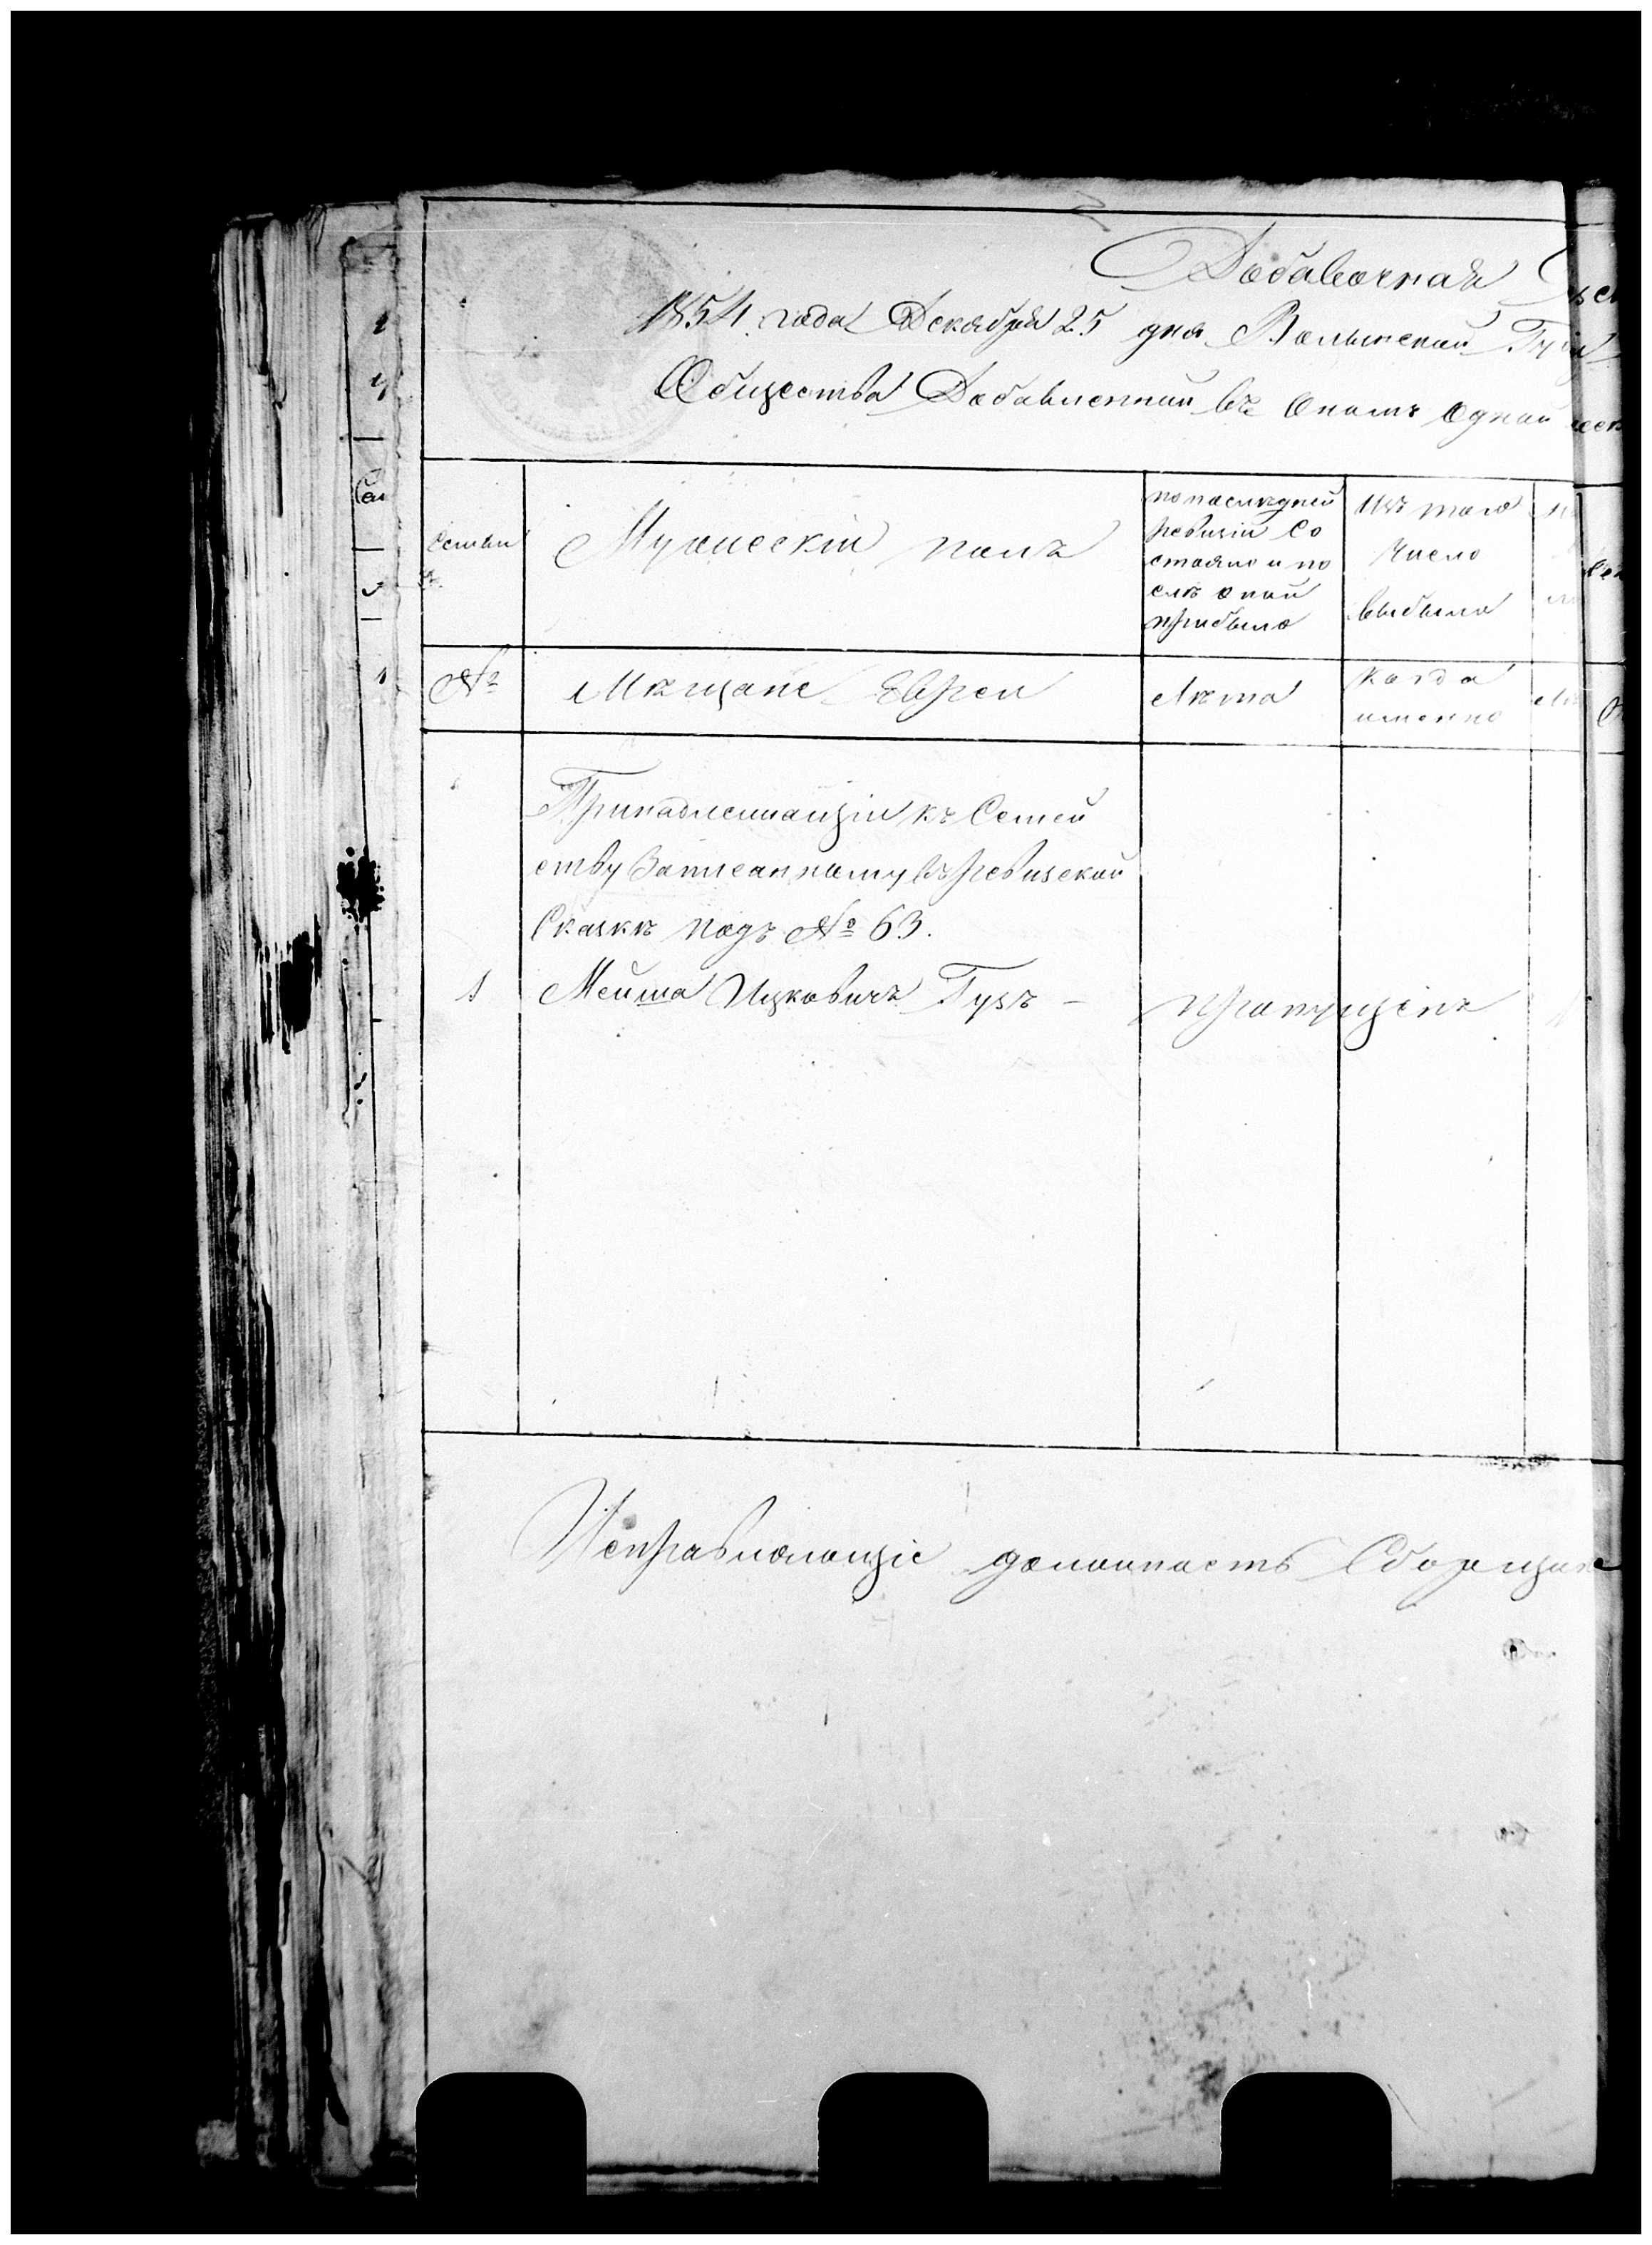 Добавочная
1854 года Декабря 25 дня Волынской Гу
Общества Добавленний въ ономъ одной
Семьи
Мужескій полъ
по последней
ревизіи со
стояло и по
слѣ оной
прибыло
Изъ того
число
выбыло
№
Мѣщане Евреи
Лѣта
Когда
именно
Принадлежащій къ Семей
ству Записанному въ ревизской
Сказкѣ подъ № 63.
1 Мейша Ицковичъ Гузъ - пропущенъ
Исправляющіе должность Сборщик